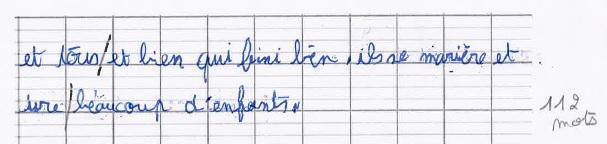 et tous/et bien qui fini bien, ils se marière et
ure/beaucoup d'enfants.
112
mots